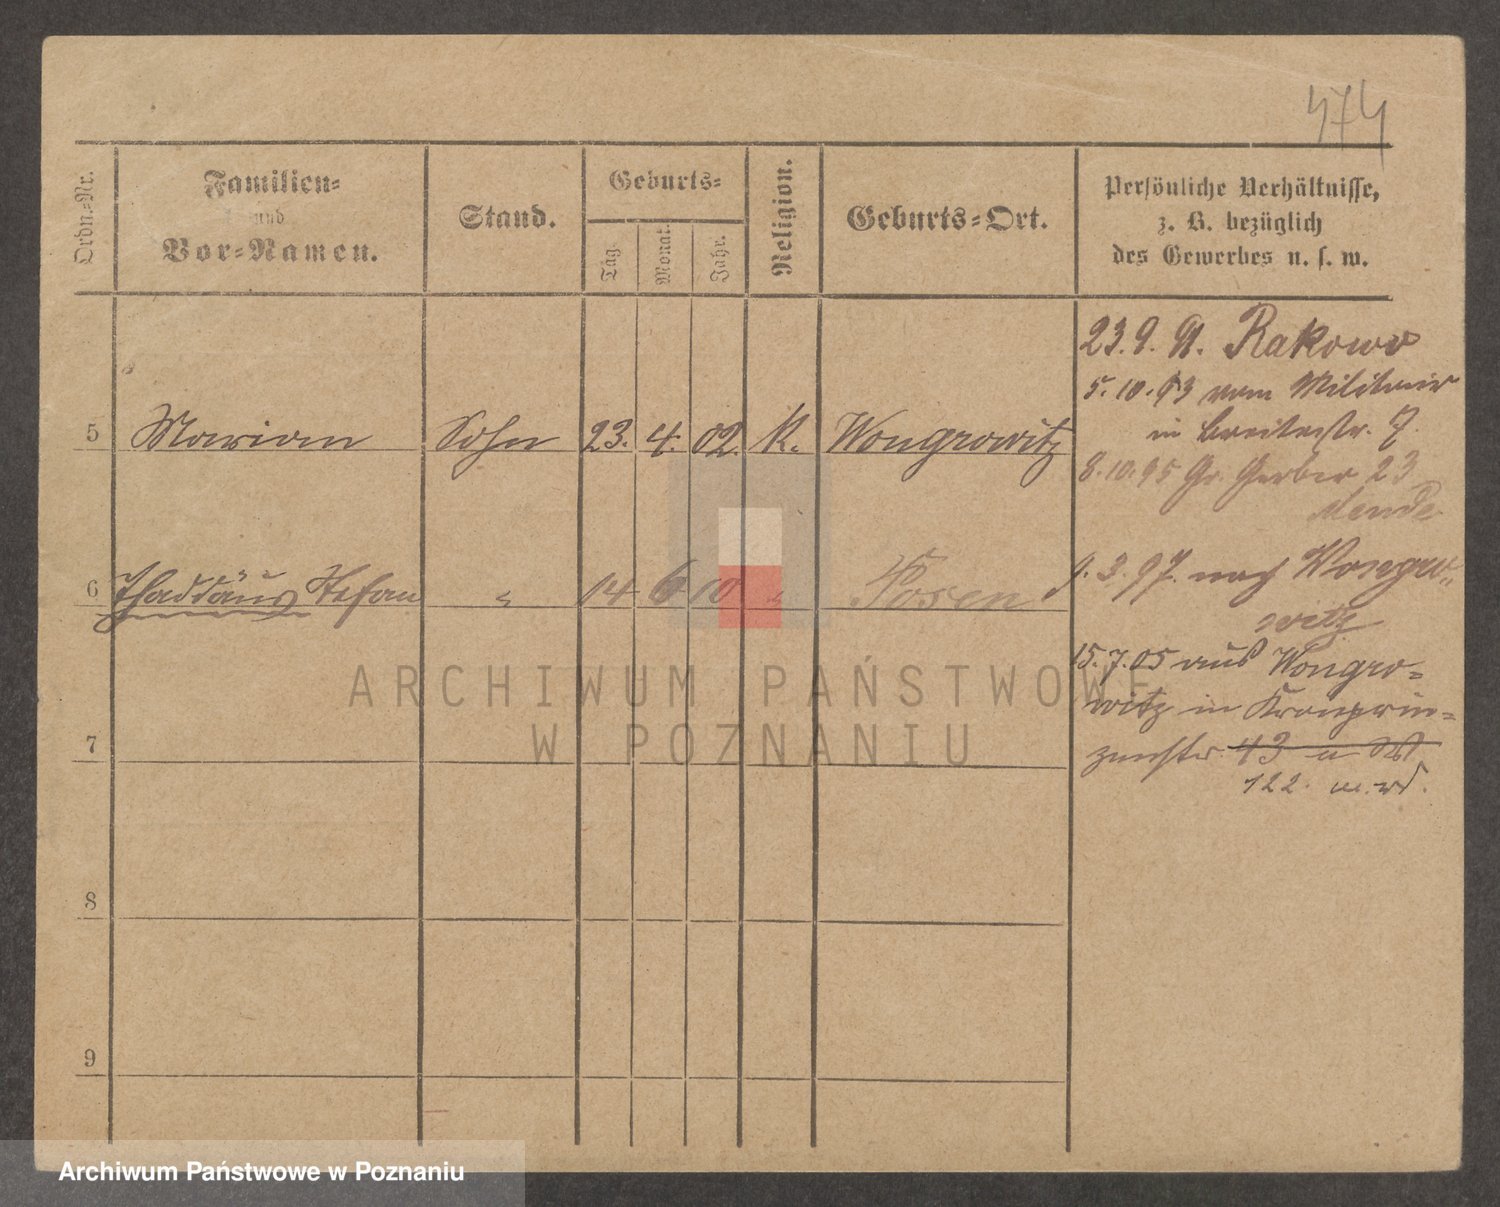 474
Ordn.-Nr.
Familien-
und
Vor-Namen.
Stand.
Geburts-
Tag.
Monat.
Jahr.
Religion.
Geburts-Ort.
Persönliche Verhältnisse,
z. B. bezüglich
des Gewerbes u. s. w.
5 Marian Sohn 23. 4. 02. K. Wongrowitz
6 Thaddäus Stefan " 14 6 10 " Posen
7
8
9
23.9.91. Rakowo
5.10.93 vom Militair
in Breitestr. 7.
8.10.95 Gr. Gerber 23
Mende
9.3.97. nach Wongro-
witz
15.7.05 aus Wongro-
witz in Kronprin-
zenstr. 43
122.
ARCHIWUM PAŃSTWOWE
W POZNANIU
Archiwum Państwowe w Poznaniu